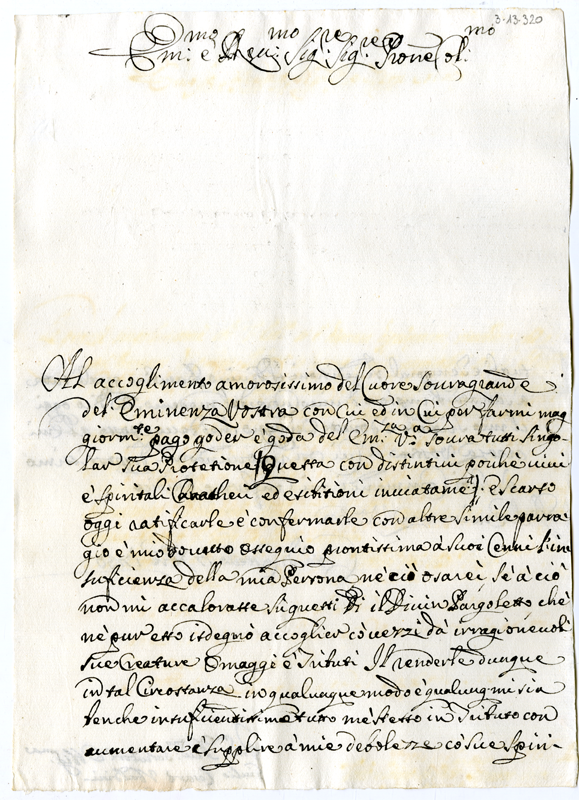 3-13.320
Em:mo e Rev:mo Sig:re Sig:re Prone Col:mo
Al accoglimento amorosissimo del Cuore Souragrande
del Eminenza Vostra con Cui ed in Cui per farmi mag
giorm:te pago goder è goda del Em:za V:a Soura tutti Singo
lar sua Protetione questa con distintivi poiche
è Spiritali ed esibitioni inviatame è Scarso
oggi ratificarle è confermarle con altre simile
gio è mio ossequio prontissima à Suoi Cenni l'in
suficienza della mia Persona nè ciò osarei, Sè à ciò
non mi accalorasse Sù questi Di il Divin Pargoletto, chè
nè pur esso isdegnò accoglier cò vezzi dà irragionevoli
Sue Creature Omaggi è Tributi Il renderle dunque
in tal Circostanza in qualunque modo è qualunq mi sia
benche insuficientissima tutto mè stesso in Tributo con
aumentare è Supplire à mie debolezze cò Sue Spiri-